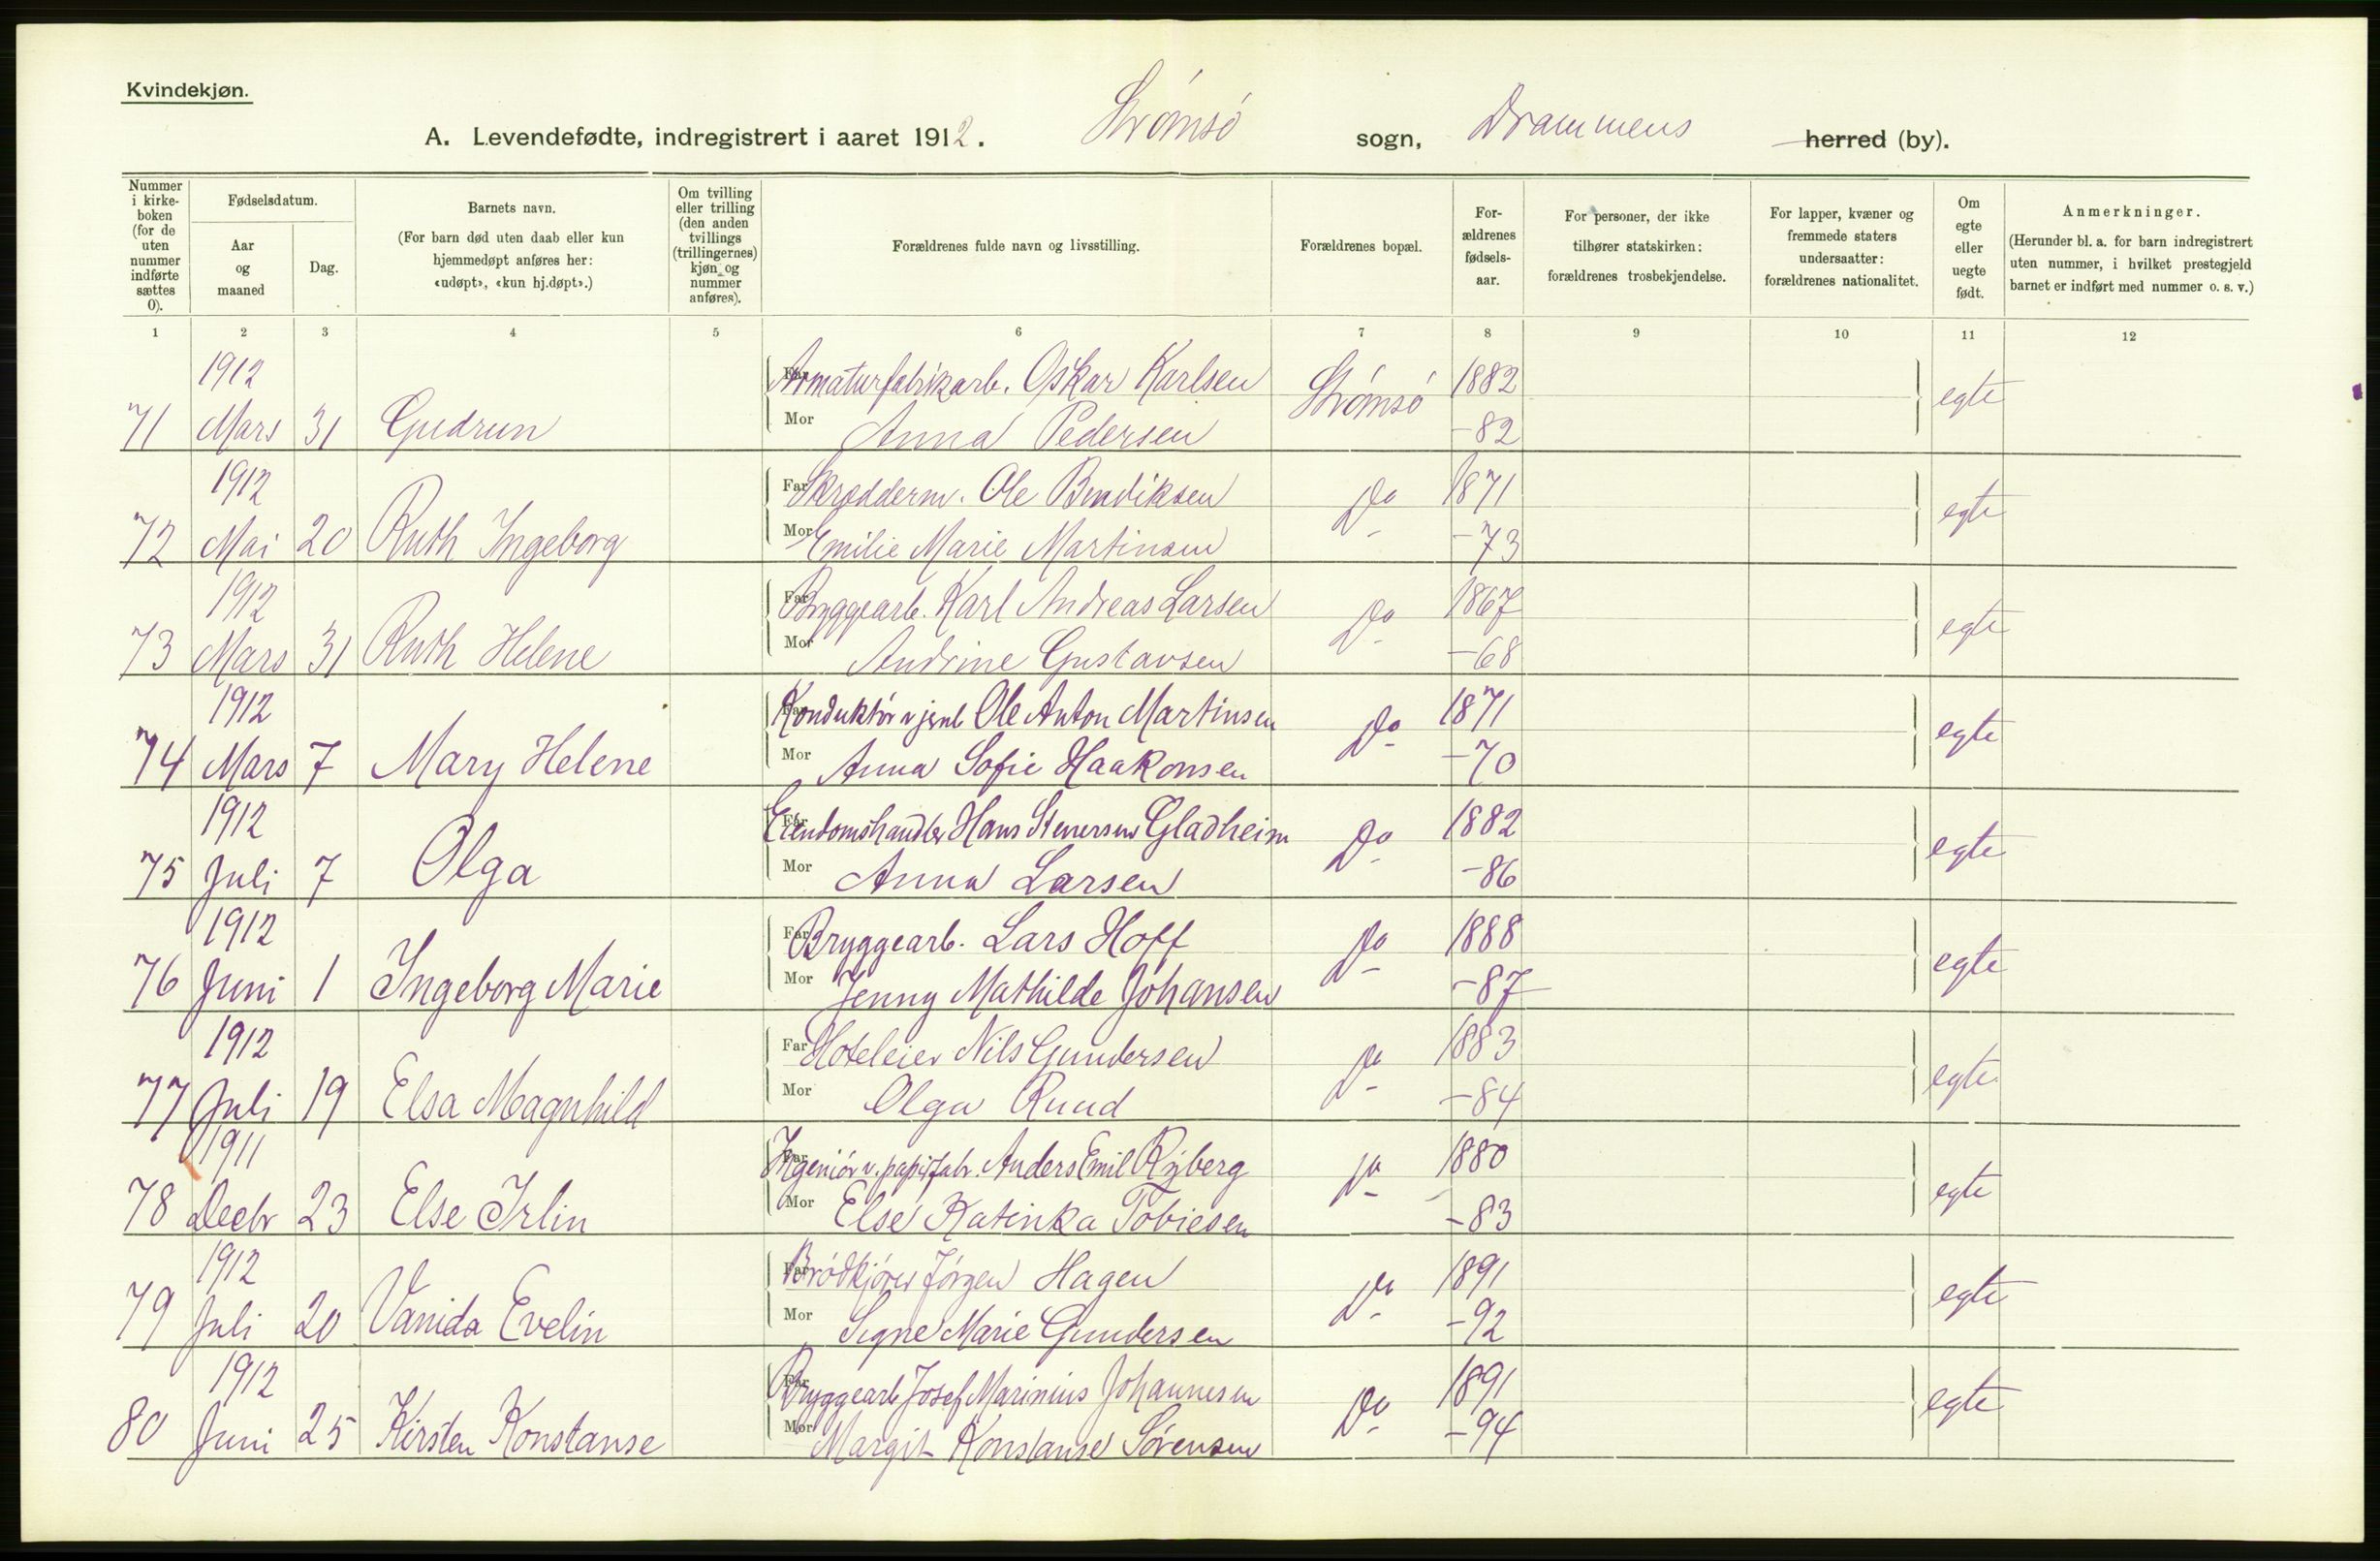 Kvindekjøn.
A. Levendefødte, indregistrert i aaret 1912. Strømsø sogn, Drammens herred (by).
Nummer i kirkeboken (for de uten nummer indførte sættes 0).
Fødselsdatum.
Aar og maaned
Dag.
Barnets navn.
(For barn død uten daab eller kun hjemmedøpt anføres her: «udøpt», «kun hj.døpt».)
Om tvilling eller trilling (den anden tvillings (trillingernes) kjøn og nummer anføres).
Forældrenes fulde navn og livsstilling.
Forældrenes bopæl.
Forældrenes fødselsaar.
For personer, der ikke tilhører statskirken: forældrenes trosbekjendelse.
For lapper, kvæner og fremmede staters undersaatter: forældrenes nationalitet.
Om egte eller uegte født.
Anmerkninger.
(Herunder bl. a. for barn indregistrert uten nummer, i hvilket prestegjeld barnet er indført med nummer o. s. v.)
1 2 3 4 5 6 7 8 9 10 11 12
1912 Far Armaturfabrikarb. Oskar Karlsen Strømsø 1882 egte
71 Mars 31 Gudrun Mor Anna Pedersen -82
1912 Far Skrædderm. Ole Bendiksen Do 1871 egte
72 Mai 20 Ruth Ingeborg Mor Emilie Marie Martinsen -73
1912 Far Bryggearb. Karl Andreas Larsen Do 1867 egte
73 Mars 31 Ruth Helene Mor Andrine Gustavsen -68
1912 Far Konduktör v jernb Ole Anton Martinsen Do 1871 egte
74 Mars 7 Mary Helene Mor Anna Sofie Haakonsen -70
1912 Far Eiendomshandler Hans Stenersen Gladheim Do 1882 egte
75 Juli 7 Olga Mor Anna Larsen -86
1912 Far Bryggearb. Lars Hoff Do 1888 egte
76 Juni 1 Ingeborg Marie Mor Jenny Mathilde Johansen -87
1912 Far Hoteleier Nils Gundersen Do 1883 egte
77 Juli 19 Elsa Magnhild Mor Olga Ruud -84
1911 Far Ingeniör v. papirfabr. Anders Emil Ryberg Do 1880 egte
78 Decbr 23 Else Irlin Mor Else Katinka Tobiesen -83
1912 Far Brödkjörer Jörgen Hagen Do 1891 egte
79 Juli 20 Vanida Evelin Mor Signe Marie Gundersen -92
1912 Far Bryggearb Josef Marinius Johannesen Do 1891 egte
80 Juni 25 Kirsten Konstanse Mor Margit Konstanse Sörensen -94